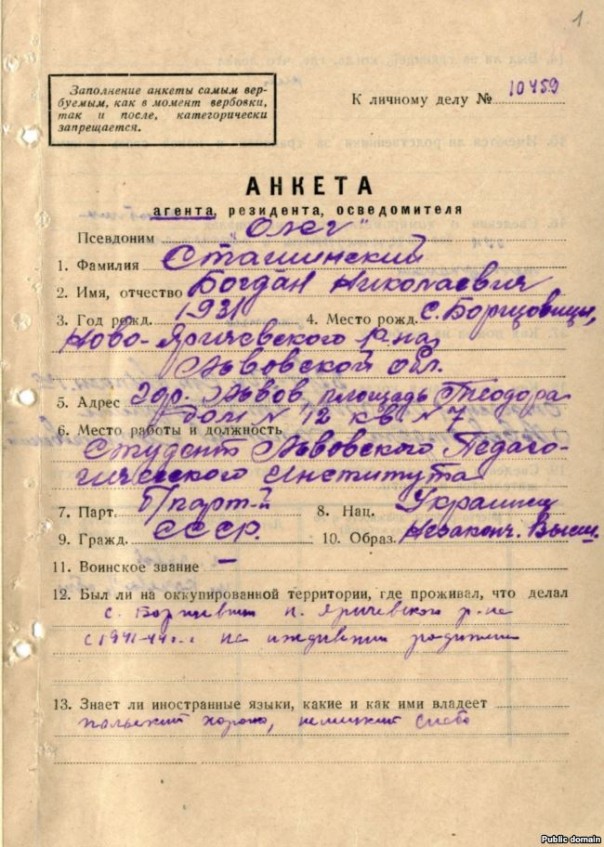 1.
Заполнение анкеты самым вер-
буемым, как в момент вербовки,
так и после, категорически
запрещается.
К личному делу № 10459
АНКЕТА
агента, резидента, осведомителя
Псевдоним "Олег"
1. Фамилия Сташинский
2. Имя, отчество Богдан Николаевич
3. Год рожд. 1931 4. Место рожд. с. Борщовицы,
Ново-Яричевского р-на
Львовской обл.
5. Адрес гор. Львов площадь Теодора
дом № 12 кв. № 7
6. Место работы и должность
Студент Львовского Педаго-
гического Института
7. Парт. б/парт-й 8. Нац. Украинец
9. Гражд. СССР. 10. Образ. Незаконч. Высш.
11. Воинское звание —
12. Был ли на оккупированной территории, где проживал, что делал
с. Борщевичи н. Яричевского р-на
с 1941-44 г. на иждивении родителей
13. Знает ли иностранные языки, какие и как ими владеет
польский хорошо, немецкий слабо
Public domain